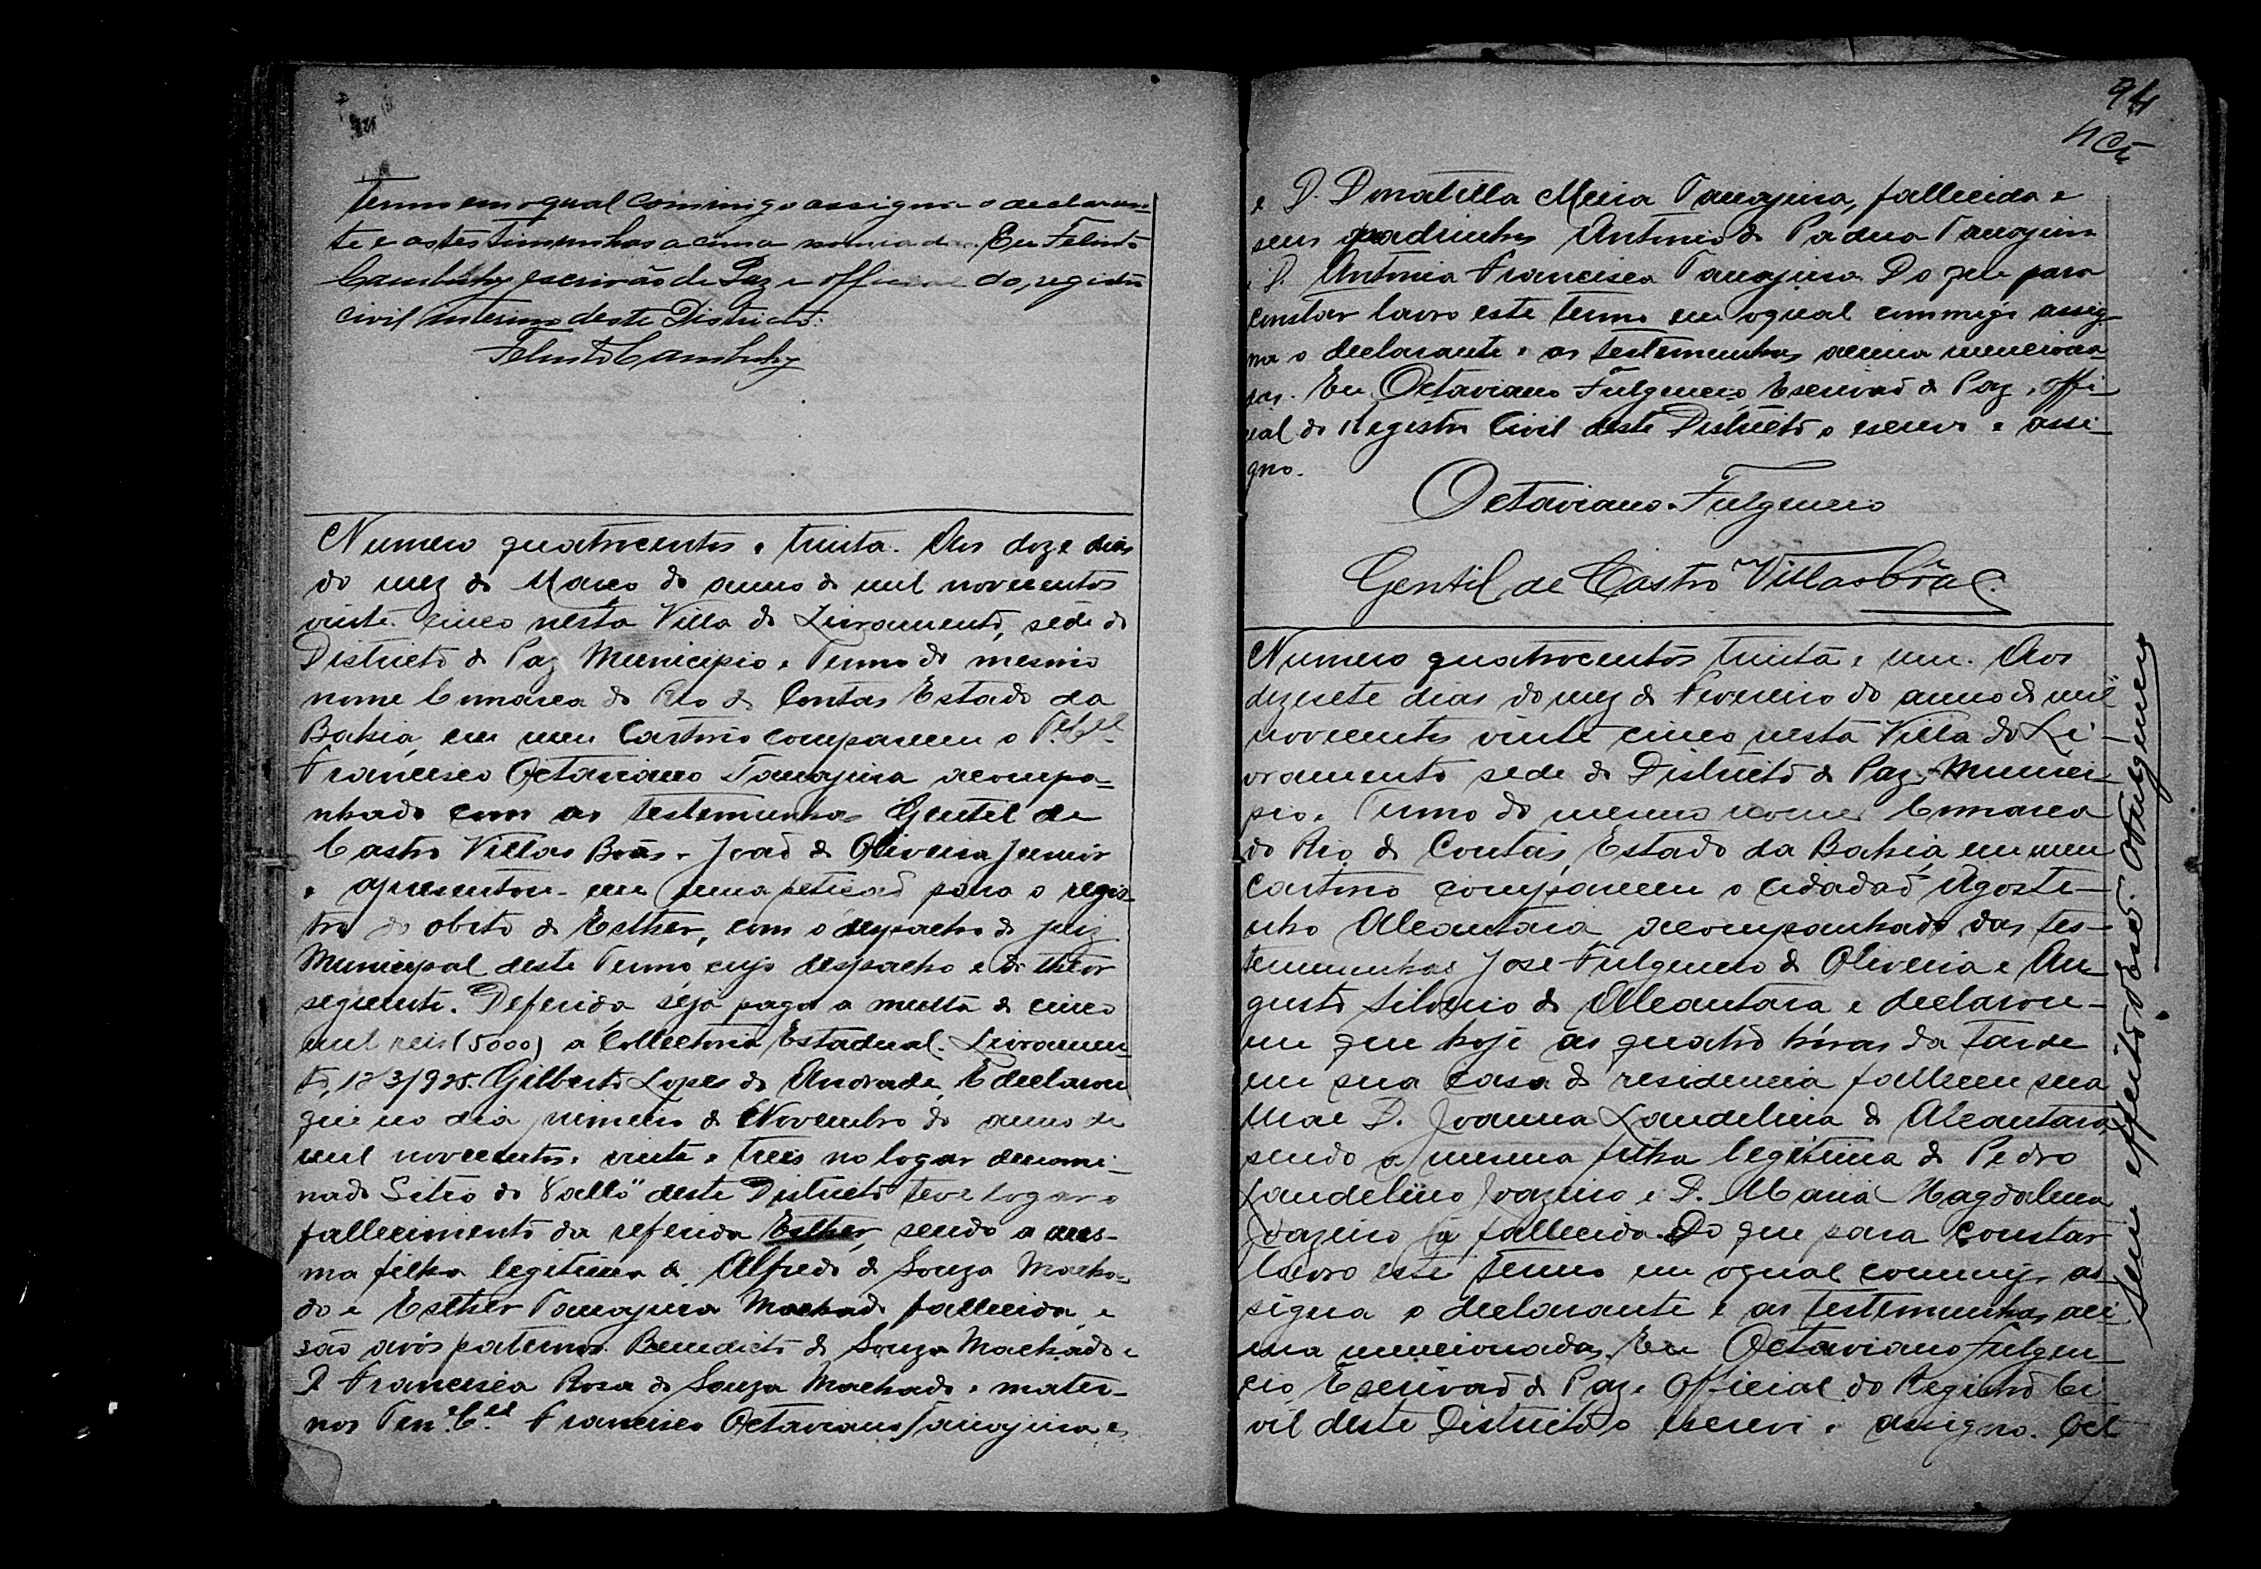 termo em o qual commigo assigna o declaran-
te e as testimunhas a cima nomiadas. Eu Felinto
Cambuhy escrivão de Paz e official do registro
civil interino deste Districto.
Felinto Cambuhy
Numero quatrocentos e trinta. Aos doze dias
do mez de Março do anno de mil novecentos
vinte cinco nesta Villa do Livramento, séde do
Districto de Paz Municipio e Termo do mesmo
nome Comarca do Rio de Contas Estado da
Bahia, em meu Cartorio compareceu o Te. Cel.
Francisco Octaviano Tanajura acompa-
nhado com as testemunhas Gentil de
Castro Villas Bôas e João de Oliveira Junior
e apresentou-me uma petição para o regis-
tro do obito de Esther, com o despacho do juiz
Municipal deste Termo cujo despacho e do theor
seguinte. Deferida seja paga a multa de cinco
mil reis (5000) a Collectoria Estadual. Livramen-
to, 12/3/925. Gilberto Lopes de Andrade, E declarou
que no dia primeiro de Novembro do anno de
mil novecentos e vinte e tres no logar denomi-
nado Sitio do "Vallo" deste Districto teve logar o
fallecimento da referida Esther, sendo a mes-
ma filha legitima de Alfredo de Souza Macha-
do e Esther Tanajura Machado fallecida, e
são avós paternos Benedicto de Souza Machado e
D. Francisca Rosa de Souza Machado e mater-
nos Ten. Cel. Francisco Octaviano Tanajura e
94
e D. Donatilla Meira Tanajura, fallecida e
seus padrinhos Antonio de Padua Tanajura
e D. Antonia Francisca Tanajura. Do que para
constar lavro este termo em o qual commigo assig-
na o declarante e as testemunhas acima menciona-
das. Eu Octaviano Fulgencio, Escrivão de Paz e offi-
cial do Registro Civil deste Districto o escrevi e assi-
gno.
Octaviano Fulgencio
Gentil de Castro Villasbôas.
Numero quatrocentos trinta e um. Aos
dezesete dias do mez de Fevereiro do anno de mil
novecentos vinte cinco nesta Villa do Li-
vramento séde do Districto de Paz, Munici-
pio e Termo do mesmo nome Comarca
do Rio de Contas, Estado da Bahia, em meu
Cartorio compareceu o cidadão Agosti-
nho Alcantara acompanhado das tes-
temunhas José Fulgencio de Oliveira e Au-
gusto Silverio de Alcantara e declarou-
me que hoje ás quatro hóras da tarde
em sua casa de residencia falleceu sua
Mae D. Joanna Landelina de Alcantara,
sendo a mesma filha legitima de Pedro
Landelino Joazeiro e D. Maria Magdalena
Joazeiro já fallecida. Do que para constar
lavro este termo em o qual commigo as-
signa o declarante e as testemunhas aci-
ma mencionadas. Eu Octaviano Fulgen-
cio, Escrivão de Paz e Official do Registro Ci
vil deste Districto o escrevi e assigno. Oct
Sem effeito